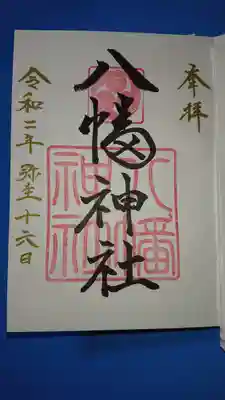 奉拝
八幡神社
八幡
神社
令和二年 弥生 十六日